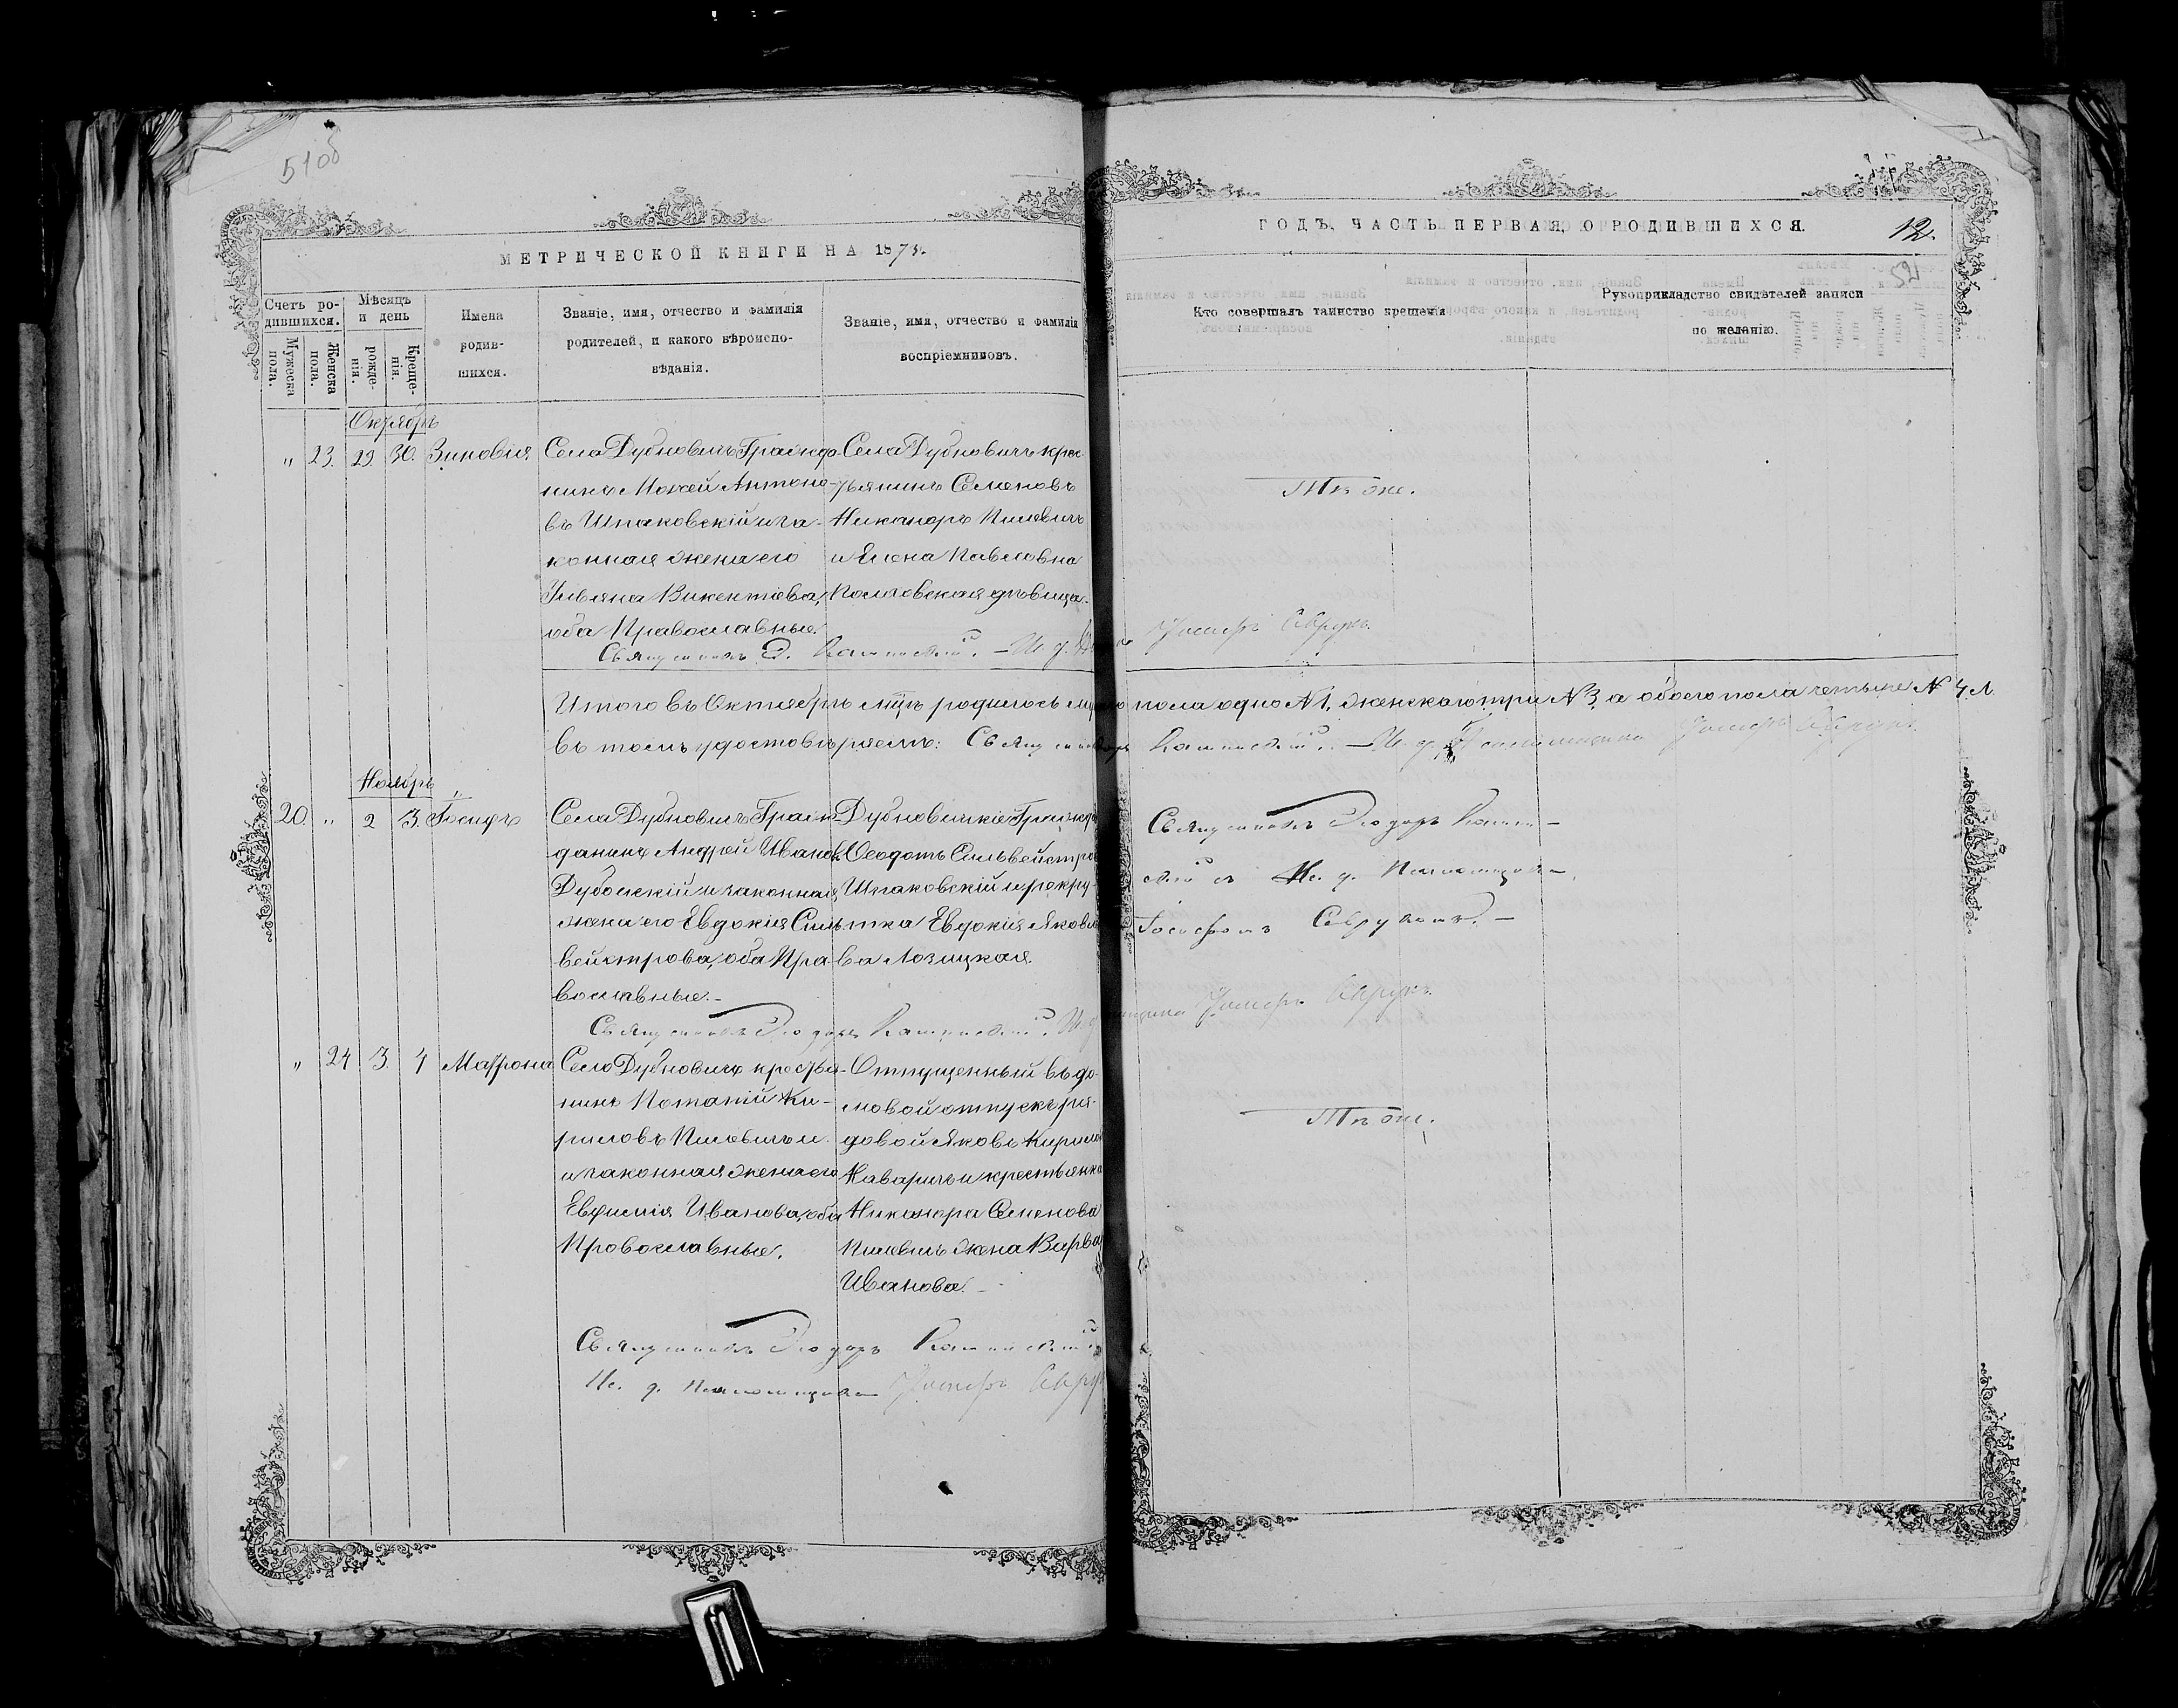 510б
МЕТРИЧЕСКОЙ КНИГИ НА 1873.
Счетъ ро-
дившихся.
Мужеска
пола.
Женска
пола.
Мѣсяцъ
и день
рожде-
нія.
Креще-
нія.
Имена
родив-
шихся.
Званіе, имя, отчество и фамилія
родителей, и какого вѣроиспо-
вѣданія.
Званіе, имя, отчество и фамилія
воспріемниковъ.
ГОДЪ, ЧАСТЬ ПЕРВАЯ, О РОДИВШИХСЯ.
12.
52
Кто совершалъ таинство крещенія
Рукоприкладство свидѣтелей записи
по желанію.
Октябрь
„ 23. 29. 30. Зиновія
Села Дубновичъ Гражда-
нинъ Моисей Антоно-
въ Шпаковскій и за-
конная жена его
Ульяна Викентіева,
оба Православные.
Села Дубновичъ крес-
тьянинъ Семеновъ
Никаноръ Пилевичъ
и Елена Павловна
девица.
Тѣ же.
Священникъ
Итого въ Октябрѣ мцѣ родилось пола одно №1, женскаго три №3, а обоего пола четыре №4. Л.
въ томъ удостовѣряемъ: Священникъ
Ноябрь
20. „ 2 3.
Села Дубновичъ Граж-
данинъ Андрей Иванов
Дубоискій и законная
жена его Евдокія Силь-
вейстрова, оба Пра-
вославные.-
Дубновичскіе Гражд
Ѳеодотъ Сильвейстров
Шпаковскій и рекру-
тка Евдокія Яковле
ва Лозицкая.
Священникъ Ѳеодоръ
съ Ис. д. Псаломщика
Іосифомъ
Священникъ Ѳеодоръ
„ 24 3. 4 Матрона
Село Дубновичъ крестья-
нинъ Потапій Ки-
риловъ Пилевичъ и
и законная жена его
Евфимія Иванова, оба
Провославные.
Отпущенный въ до-
мовой отпускъ ря-
довой Яковъ Кирилов
Наваричъ и крестьянка
Никанора Семенова
Пилевичъ жена Варва
Иванова.
Тѣ же.
Священникъ Ѳеодоръ
Ис. д. Псаломщика